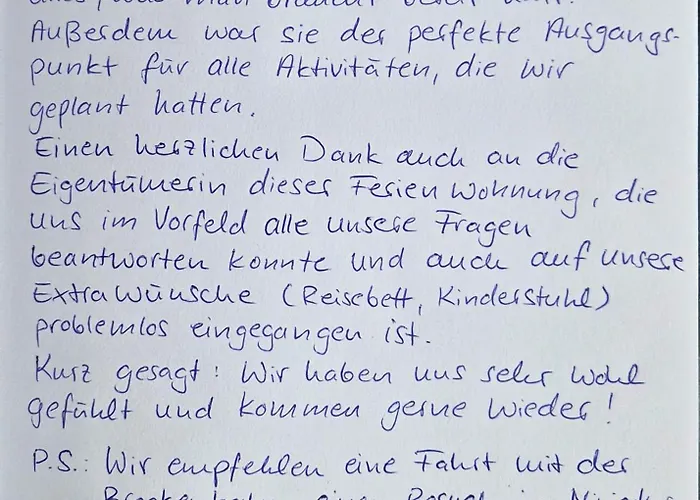 Außerdem war sie der perfekte Ausgangs-
punkt für alle Aktivitäten, die wir
geplant hatten.
Einen herzlichen Dank auch an die
Eigentümerin dieser Ferienwohnung, die
uns im Vorfeld alle unsere Fragen
beantworten konnte und auch auf unsere
Extrawünsche (Reisebett, Kinderstuhl)
problemlos eingegangen ist.
Kurz gesagt: Wir haben uns sehr wohl
gefühlt und kommen gerne wieder!
P.S.: Wir empfehlen eine Fahrt mit der